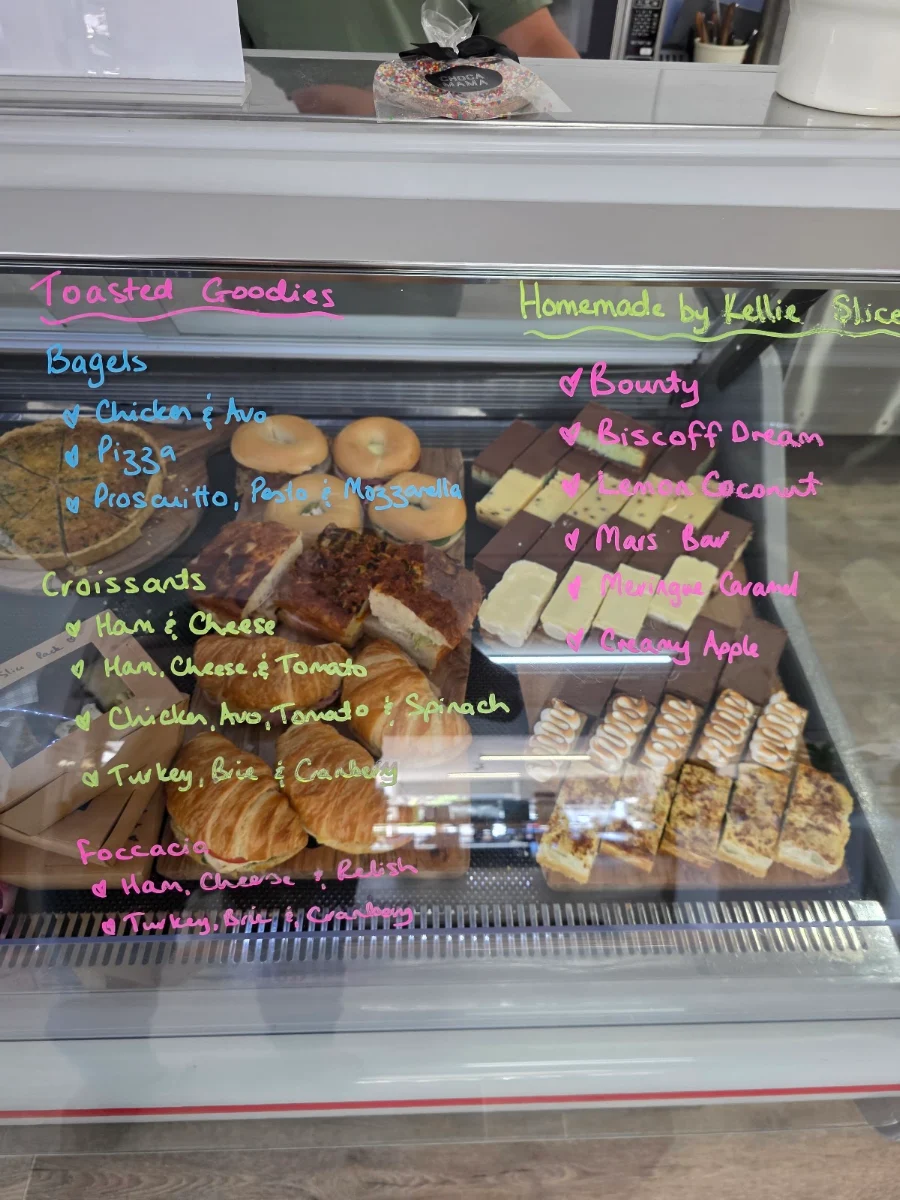 CHOCA
MAMA
Toasted Goodies
Bagels
Chicken & Avo
Pizza
Proscuitto, Pesto & Mozzarella
Croissants
Ham & Cheese
Ham, Cheese, & Tomato
Chicken, Avo, Tomato & Spinach
Turkey, Brie & Cranberry
Foccacia
Ham, Cheese & Relish
Turkey, Brie & Cranberry
Homemade by Kellie Slice
Bounty
Biscoff Dream
Lemon Coconut
Mars Bar
Meringue Caramel
Creamy Apple
Slice Pack